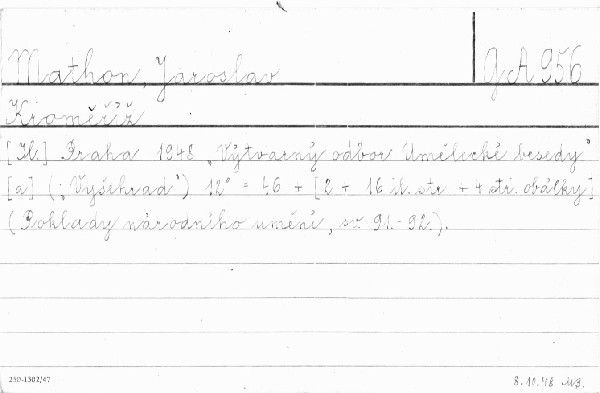 Mathon, Jaroslav
G A 956
Kroměříž
[Il.] Praha 1948 „Výtvarný odbor Umělecké besedy"
[a] („Vyšehrad") 12° - 46 + [2 + 16 il. str. + 4 str. obálky]
(Poklady národního umění, sv. 91.-92.).
230-1302/47
8.10.48